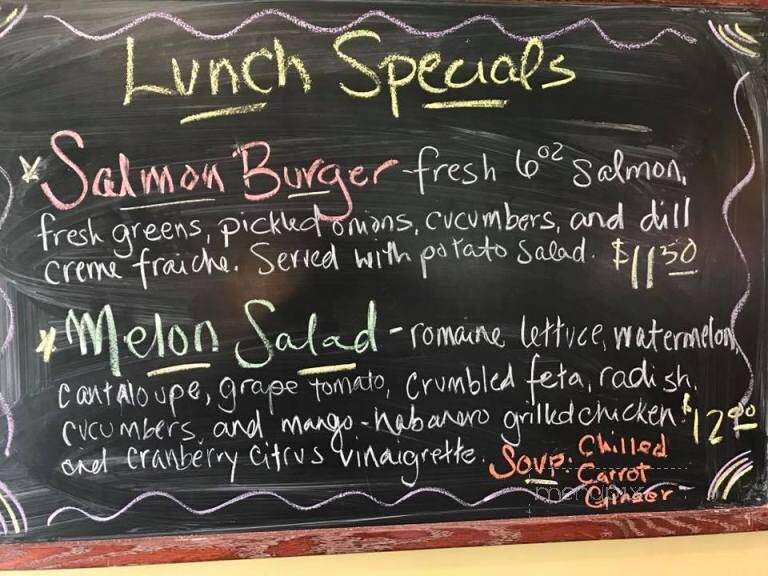 Lunch Specials
Salmon Burger - fresh 6oz Salmon,
fresh greens, pickled onions, cucumbers, and dill
creme fraiche. Served with potato salad. $11 50
Melon Salad - romaine lettuce, watermelon,
cantaloupe, grape tomato, crumbled feta, radish,
cucumbers, and mango-habanero grilled chicken $12 00
and cranberry citrus vinaigrette. Soup: Chilled
Carrot
Ginger